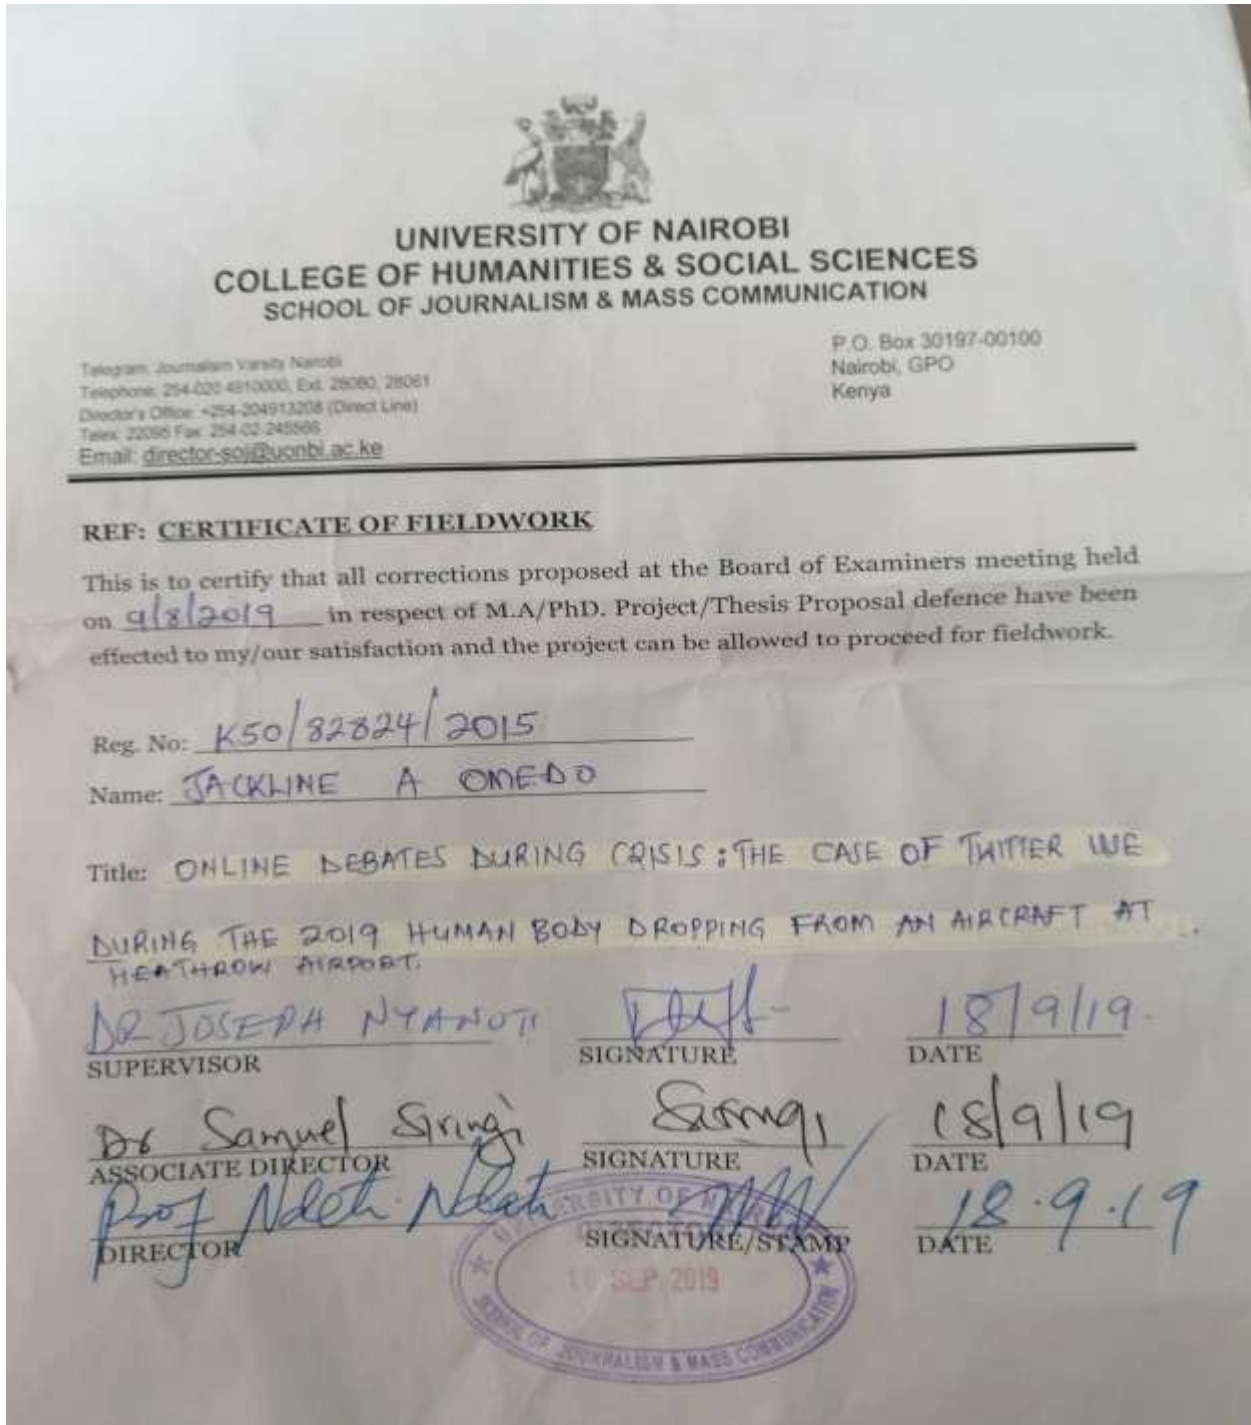 UNIVERSITY OF NAIROBI
COLLEGE OF HUMANITIES & SOCIAL SCIENCES
SCHOOL OF JOURNALISM & MASS COMMUNICATION
Telegram: Journalism Varsity Nairobi
Telephone: 254-020 4910000, Ext. 28080, 28061
Director's Office: +254-204913208 (Direct Line)
Telex: 22095 Fax: 254-02-245566
Email: director-soj@uonbi.ac.ke
P.O. Box 30197-00100
Nairobi, GPO
Kenya
REF: CERTIFICATE OF FIELDWORK
This is to certify that all corrections proposed at the Board of Examiners meeting held
on 9/8/2019 in respect of M.A/PhD. Project/Thesis Proposal defence have been
effected to my/our satisfaction and the project can be allowed to proceed for fieldwork.
Reg. No: K50/82824/2015
Name: JACKLINE A OMEDO
Title: ONLINE DEBATES DURING CRISIS: THE CASE OF TWITTER USE
DURING THE 2019 HUMAN BODY DROPPING FROM AN AIRCRAFT AT
HEATHROW AIRPORT.
DR JOSEPH NYANOTI 18/9/19.
SUPERVISOR SIGNATURE DATE
Dr Samuel Siringi Siringi 18/9/19
ASSOCIATE DIRECTOR SIGNATURE DATE
Prof Ndeti Ndeti 18.9.19
DIRECTOR SIGNATURE/STAMP DATE
UNIVERSITY OF NAIROBI
SEP 2019
SCHOOL OF JOURNALISM & MASS COMMUNICATION